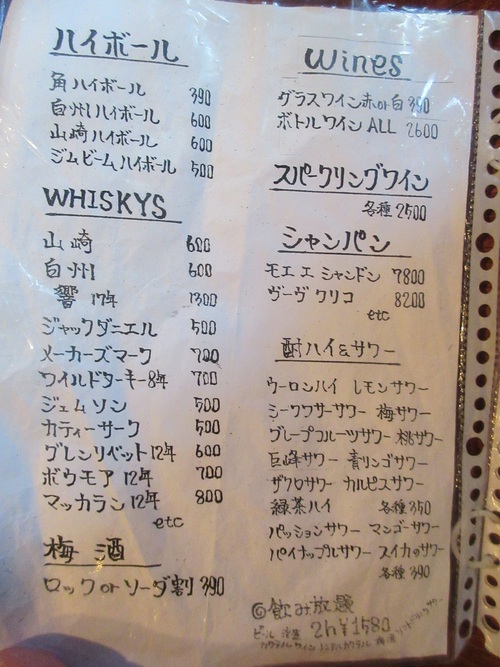 ハイボール
角ハイボール 390
白州ハイボール 600
山崎ハイボール 600
ジムビームハイボール 500
WHISKYS
山崎 600
白州 600
響 17年 1300
ジャックダニエル 500
メーカーズマーク 700
ワイルドターキー8年 700
ジェムソン 500
カティーサーク 500
グレンリベット12年 600
ボウモア 12年 700
マッカラン 12年 800
etc
梅酒
ロック or ソーダ割 390
Wines
グラスワイン赤or白 390
ボトルワイン ALL 2600
スパークリングワイン
各種 2500
シャンパン
モエ エ シャンドン 7800
ヴーヴ クリコ 8200
etc
酎ハイ&サワー
ウーロンハイ レモンサワー
シークワサーサワー 梅サワー
グレープフルーツサワー 桃サワー
巨峰サワー 青リンゴサワー
ザクロサワー カルピスサワー
緑茶ハイ 各種 350
パッションサワー マンゴーサワー
パイナップルサワー スイカサワー
各種 390
◎飲み放題
ビール 2h¥1580
カクテル ワイン ノンアルカクテル 梅酒